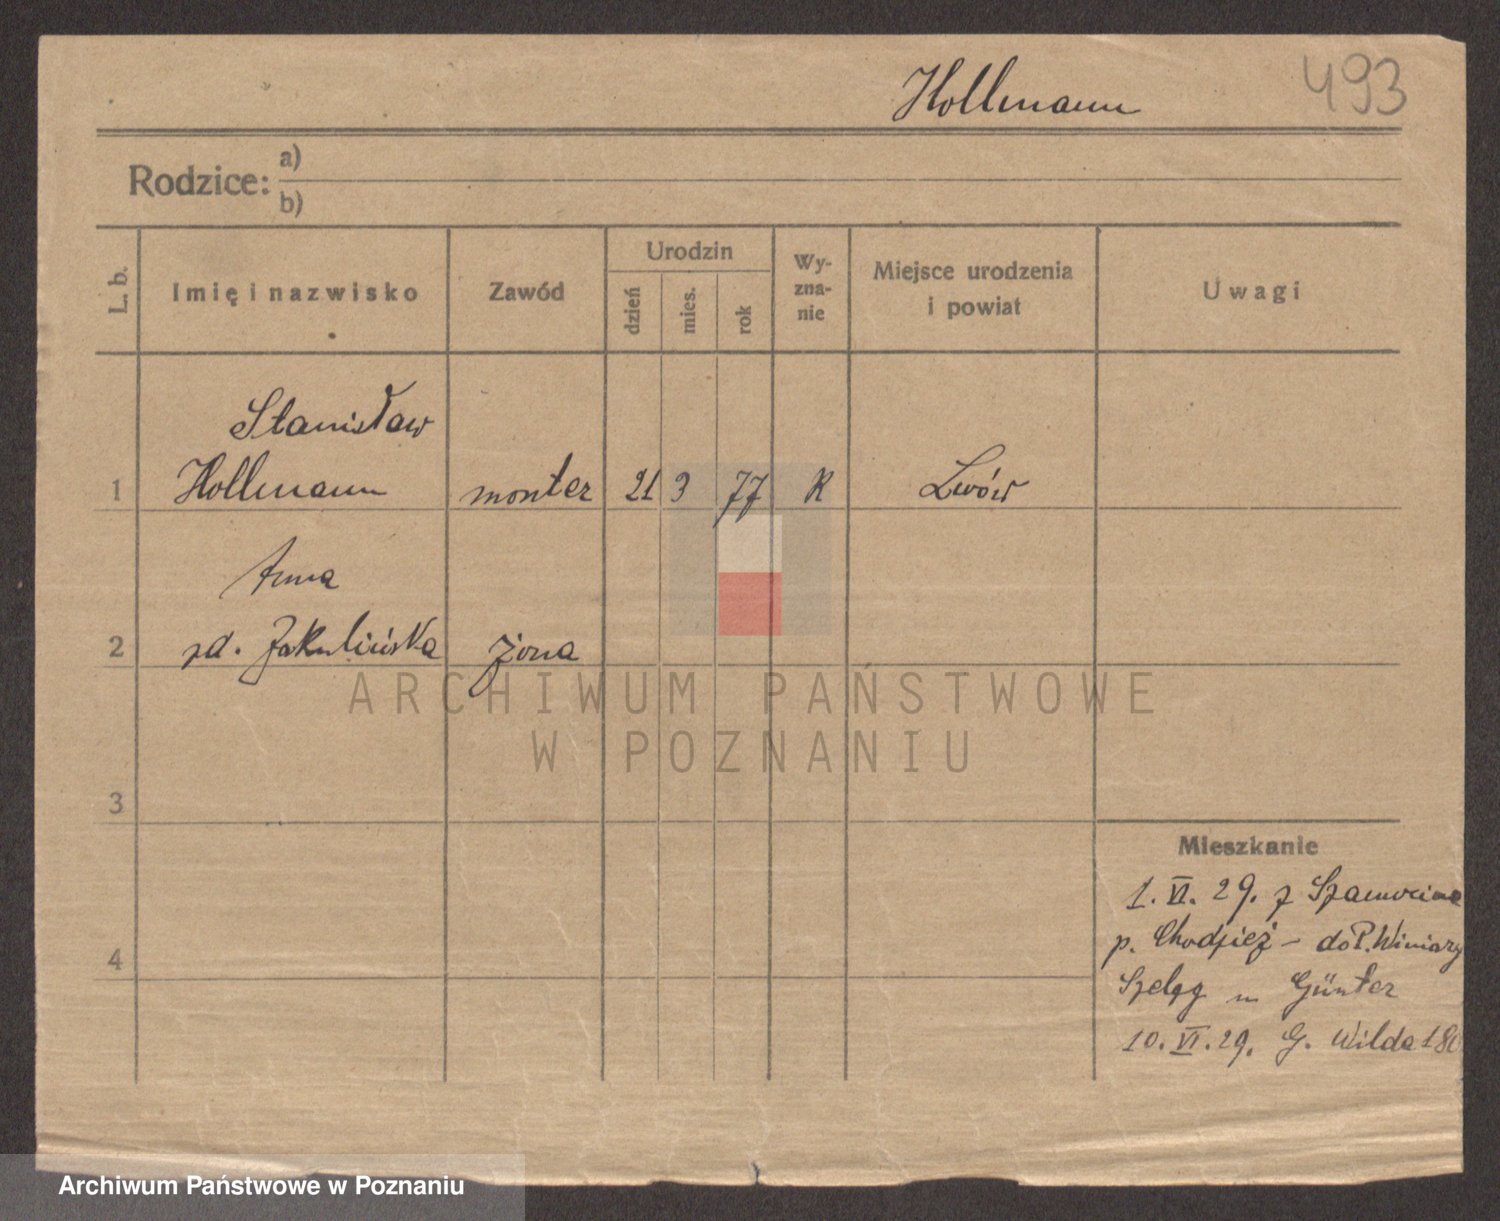 Hollmann
493
Rodzice: a)
b)
L. b.
Imię i nazwisko
Zawód
Urodzin
dzień
mies.
rok
Wy-
zna-
nie
Miejsce urodzenia
i powiat
Uwagi
Stanisław
1 Hollmann monter 21 3 77 K Lwów
Anna
2 zd. Jakulińska żona
3
4
Mieszkanie
1. VI. 29. z Szamocina
p. Chodzież - do P. Winiary
Szeląg m Günter
10. VI. 29. G. Wilda 180
ARCHIWUM PAŃSTWOWE
W POZNANIU
Archiwum Państwowe w Poznaniu